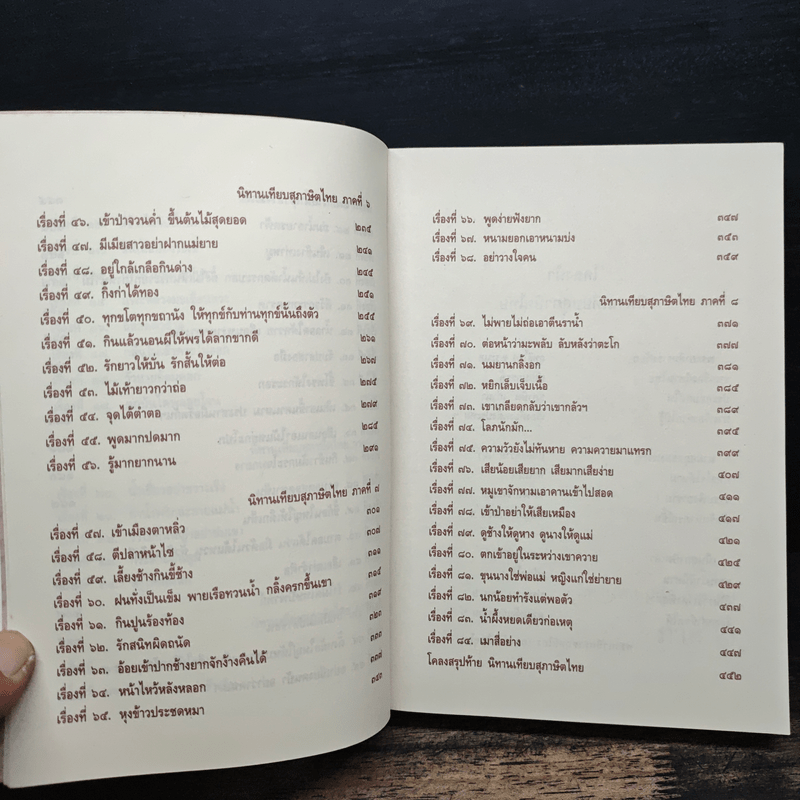 นิทานเทียบสุภาษิตไทย ภาคที่ ๖
เรื่องที่ ๔๖. เข้าป่าจวนค่ำ ขึ้นต้นไม้สุดยอด ๒๓๕
เรื่องที่ ๔๗. มีเมียสาวอย่าฝากแม่ยาย ๒๔๑
เรื่องที่ ๔๘. อยู่ใกล้เกลือกินด่าง ๒๔๕
เรื่องที่ ๔๙. กิ้งก่าได้ทอง ๒๕๑
เรื่องที่ ๕๐. ทุกขโตทุกขถานัง ให้ทุกข์กับท่านทุกข์นั้นถึงตัว ๒๕๕
เรื่องที่ ๕๑. กินแล้วนอนผีให้พรได้ลากขากดี ๒๖๑
เรื่องที่ ๕๒. รักยาวให้บั่น รักสั้นให้ต่อ ๒๖๗
เรื่องที่ ๕๓. ไม้เท้ายาวกว่าถ่อ ๒๗๕
เรื่องที่ ๕๔. จุดไต้ตำตอ ๒๗๙
เรื่องที่ ๕๕. พูดมากปดมาก ๒๘๕
เรื่องที่ ๕๖. รู้มากยากนาน ๒๙๑
นิทานเทียบสุภาษิตไทย ภาคที่ ๗
เรื่องที่ ๕๗. เข้าเมืองตาหลิ่ว ๓๐๑
เรื่องที่ ๕๘. ตีปลาหน้าไซ ๓๐๗
เรื่องที่ ๕๙. เลี้ยงช้างกินขี้ช้าง ๓๑๑
เรื่องที่ ๖๐. ฝนทั่งเป็นเข็ม พายเรือทวนน้ำ กลิ้งครกขึ้นเขา ๓๑๕
เรื่องที่ ๖๑. กินปูนร้องท้อง ๓๑๙
เรื่องที่ ๖๒. รักสนิทผิดถนัด ๓๒๐
เรื่องที่ ๖๓. อ้อยเข้าปากช้างยากจักง้างคืนได้
เรื่องที่ ๖๔. หน้าไหว้หลังหลอก
เรื่องที่ ๖๕. หุงข้าวประชดหมา
เรื่องที่ ๖๖. พูดง่ายฟังยาก ๓๔๗
เรื่องที่ ๖๗. หนามยอกเอาหนามบ่ง ๓๕๓
เรื่องที่ ๖๘. อย่าวางใจคน ๓๕๙
นิทานเทียบสุภาษิตไทย ภาคที่ ๘
เรื่องที่ ๖๙. ไม่พายไม่ถ่อเอาตีนราน้ำ ๓๗๑
เรื่องที่ ๗๐. ต่อหน้าว่ามะพลับ ลับหลังว่าตะโก ๓๗๗
เรื่องที่ ๗๑. นมยานกลิ้งอก ๓๘๑
เรื่องที่ ๗๒. หยิกเล็บเจ็บเนื้อ ๓๘๕
เรื่องที่ ๗๓. เขาเกลียดกลับว่าเขากลัวฯ ๓๘๙
เรื่องที่ ๗๔. โลภนักมัก... ๓๙๕
เรื่องที่ ๗๕. ความวัวยังไม่ทันหาย ความควายมาแทรก ๓๙๙
เรื่องที่ ๗๖. เสียน้อยเสียยาก เสียมากเสียง่าย ๔๐๗
เรื่องที่ ๗๗. หมูเขาจักหามเอาคานเข้าไปสอด ๔๑๑
เรื่องที่ ๗๘. เข้าป่าอย่าให้เสียเหมือง ๔๑๗
เรื่องที่ ๗๙. ดูช้างให้ดูหาง ดูนางให้ดูแม่ ๔๒๑
เรื่องที่ ๘๐. ตกเข้าอยู่ในระหว่างเขาควาย ๔๒๕
เรื่องที่ ๘๑. ขุนนางใช่พ่อแม่ หญิงแก่ใช่ย่ายาย ๔๒๙
เรื่องที่ ๘๒. นกน้อยทำรังแต่พอตัว ๔๓๗
เรื่องที่ ๘๓. น้ำผึ้งหยดเดียวก่อเหตุ ๔๔๑
เรื่องที่ ๘๔. เมาสี่อย่าง ๔๔๗
โคลงสรุปท้าย นิทานเทียบสุภาษิตไทย ๔๕๒